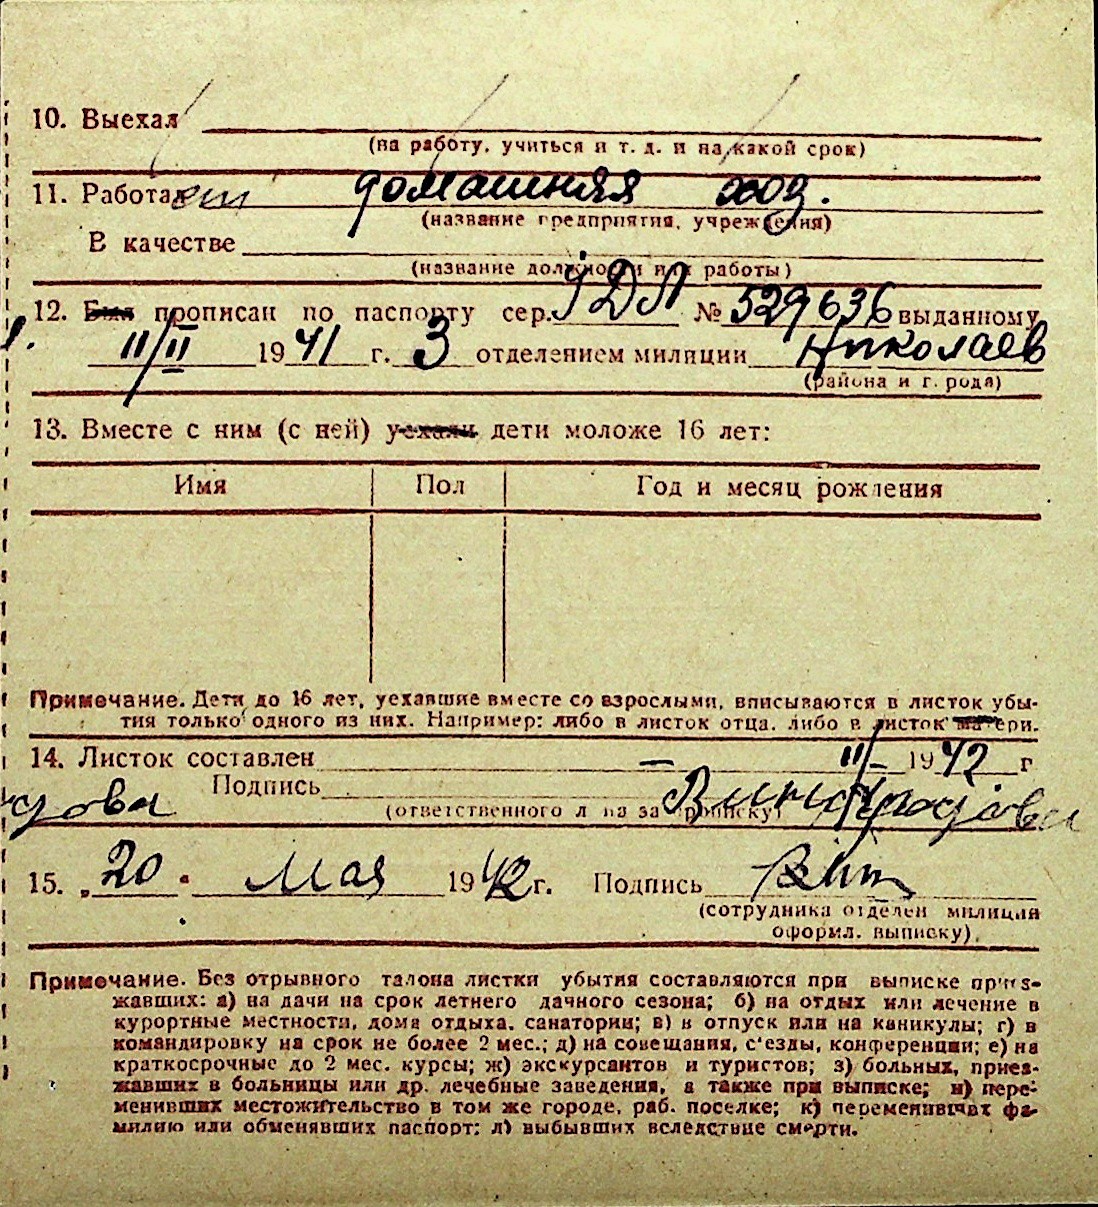 10. Выехал
(на работу, учиться и т. д. и на какой срок)
11. Работает домашняя хоз.
(название предприятия, учреждения)
В качестве
(название должности или работы)
12. Был прописан по паспорту сер. № 529636 выданному
11/II 1941 г. 3 отделением милиции Николаев
(района и г. рода)
13. Вместе с ним (с ней) уехали дети моложе 16 лет:
Имя Пол Год и месяц рождения
Примечание. Дети до 16 лет, уехавшие вместе со взрослыми, вписываются в листок убы-
тия только одного из них. Например: либо в листок отца, либо в листок матери.
14. Листок составлен — 11/— 1942 г
Подпись Виноградова
(ответственного л на за прописку)
15. „20" Мая 1942 г. Подпись
(сотрудника отделен милиции
оформл. выписку).
Примечание. Без отрывного талона листки убытия составляются при выписке приез-
жавших: а) на дачи на срок летнего дачного сезона; б) на отдых или лечение в
курортные местности, дома отдыха. санатории; в) в отпуск или на каникулы; г) в
командировку на срок не более 2 мес.; д) на совещания, с'езды, конференции; е) на
краткосрочные до 2 мес. курсы; ж) экскурсантов и туристов; з) больных, приез-
жавших в больницы или др. лечебные заведения, а также при выписке; и) пере-
менивших местожительство в том же городе, раб. поселке; к) переменивших фа-
милию или обменявших паспорт; л) выбывших вследствие смерти.